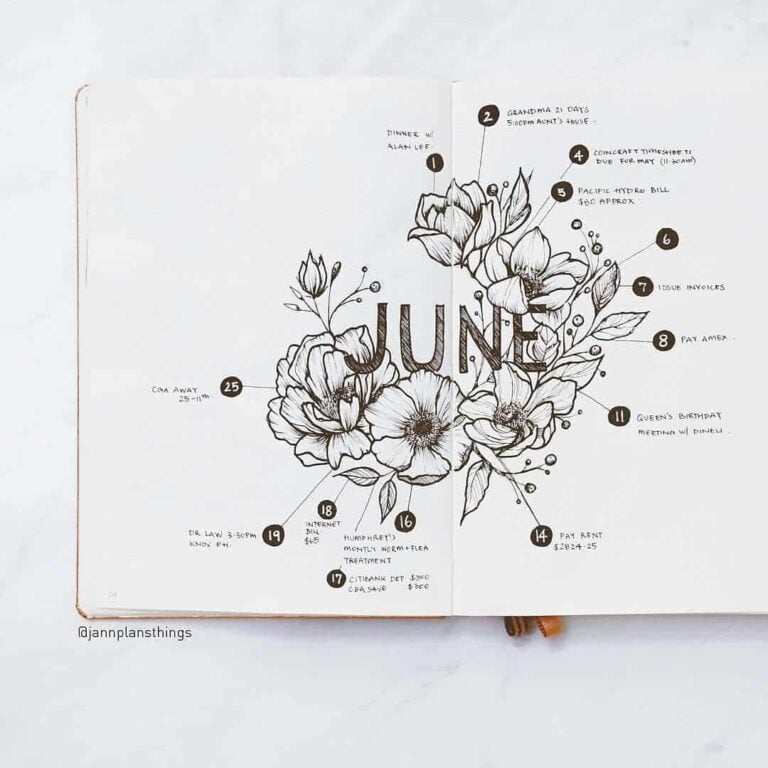 DINNER W/
ALAN LEE.
1
2
GRANDMA 21 DAYS
5:00PM AUNT'S HOUSE.
4
COINCRAFT TIMESHEETS
DUE FOR MAY (11:30AM)
5
PACIFIC HYDRO BILL
$80 APPROX.
6
7
ISSUE INVOICES
8
PAY AMEX.
JUNE
11
QUEEN'S BIRTHDAY
MEETING W/ DINELI.
14
PAY RENT
$2824.25
16
HUMPHREY'S
MONTLY WORM & FLEA
TREATMENT
17
CITIBANK DEP $300
CBA SAVE $300
18
INTERNET
BILL
$65
19
DR LAW 3:30PM
KNOX PH.
25
AWAY
25-11TH
@jannplansthings